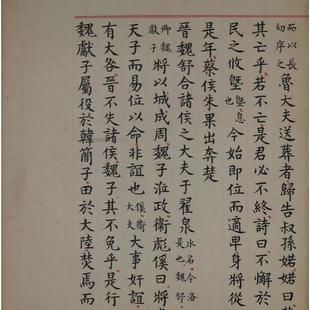 而以長幼序之魯大夫送葬者歸告叔孫婼婼曰
其亡乎若不亡是君必不終詩曰不懈於
民之攸塈塈息也今始即位而適卑身將從
是年蔡侯朱果出奔楚
晉魏舒合諸侯之大夫于翟泉水名今洛是也魏舒
卿魏獻子將以城成周魏子涖政衞彪傒曰將
天子而易位以命非誼也傒衞大夫大事奸誼
有大咎晉不失諸侯魏子其不免乎是行
魏獻子屬役於韓簡子田於大陸焚焉而